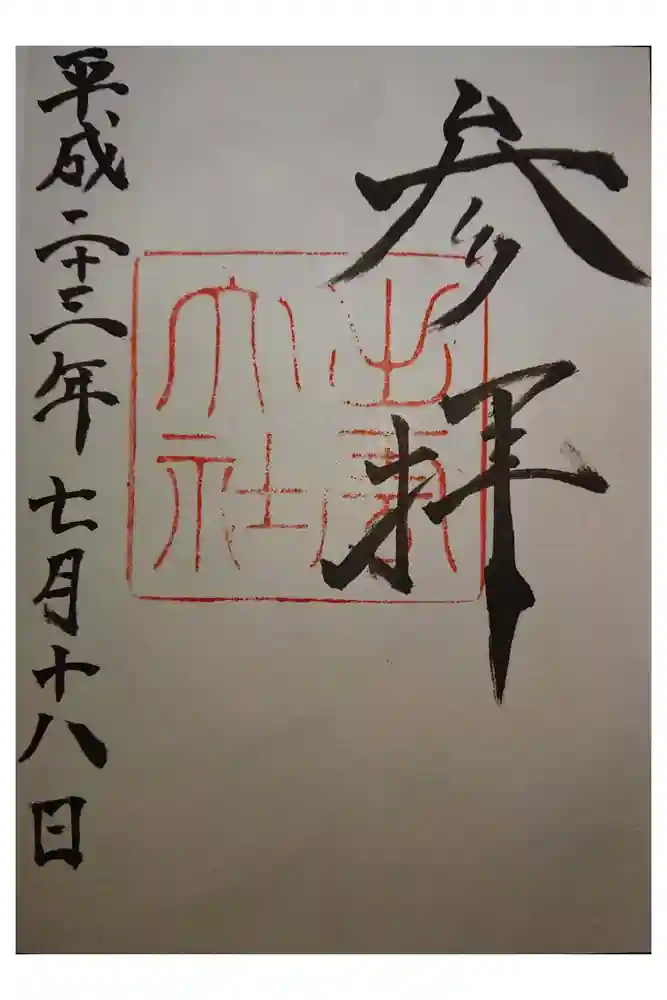 参拝
出雲
大社
平成二十三年七月十八日